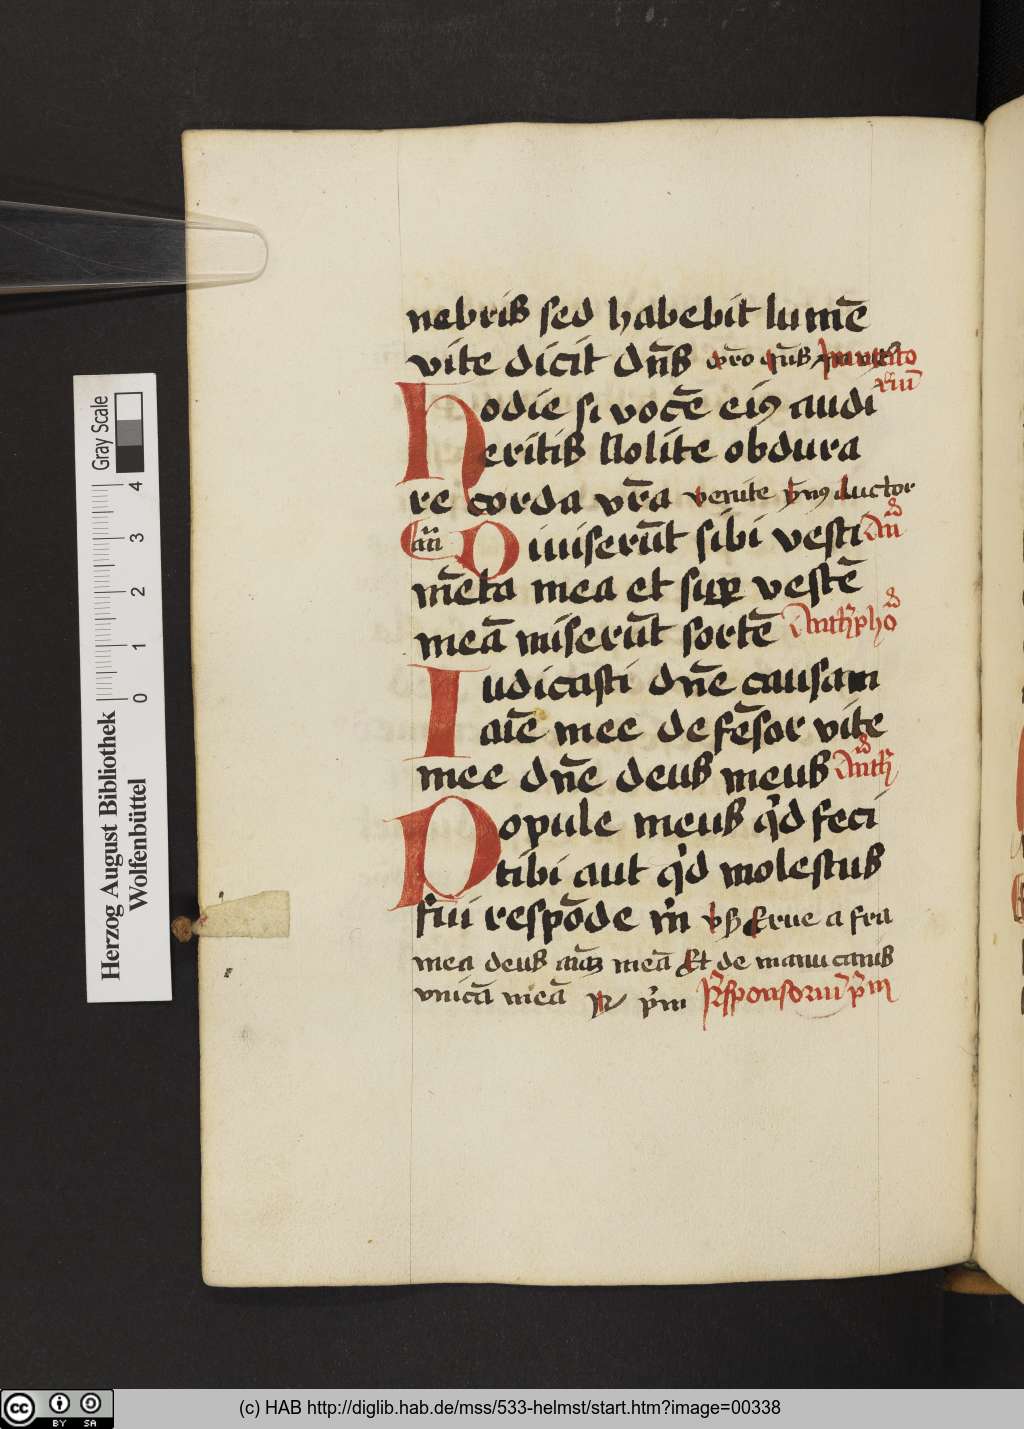 nebris sed habebit lumē
vite dicit dn̄s oro qūs Inuitato
riū
Hodie si vocē eiꝯ audi
eritis Nolite obdura
re corda vr̄a venite ductor
an̄ Diuiserūt sibi vesti An̄
mēta mea et suꝑ vestē
meā miserūt sortē Anthiphō
Iudicasti dn̄e causam
aīe mee defēsor vite
mee dn̄e deus meus Anth
Popule meus qͥd feci
tibi aut qͥd molestus
fui respōde m̄ vs Erue a fra
mea deus meā Et de manu canis
vnicā meā ℟ pͥm Rͤsponsoriū pͥm
Gray Scale
4 3 2 1 0
Herzog August Bibliothek
Wolfenbüttel
cc BY SA
(c) HAB http://diglib.hab.de/mss/533-helmst/start.htm?image=00338